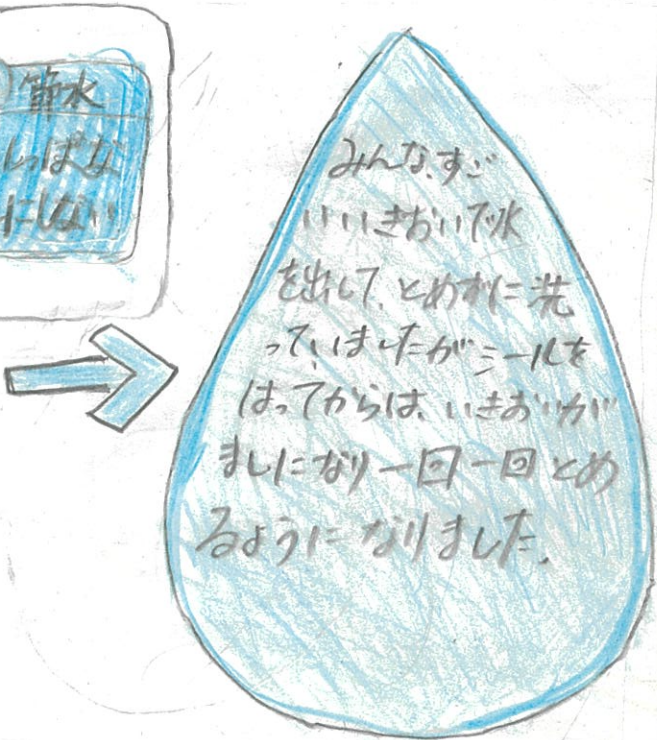 節水
しっぱな
にしない
みんな、すご
いいきおいで水
を出して、とめずに洗
っていましたがシールを
はってからは、いきおいが
ましになり一回一回とめ
るようになりました。